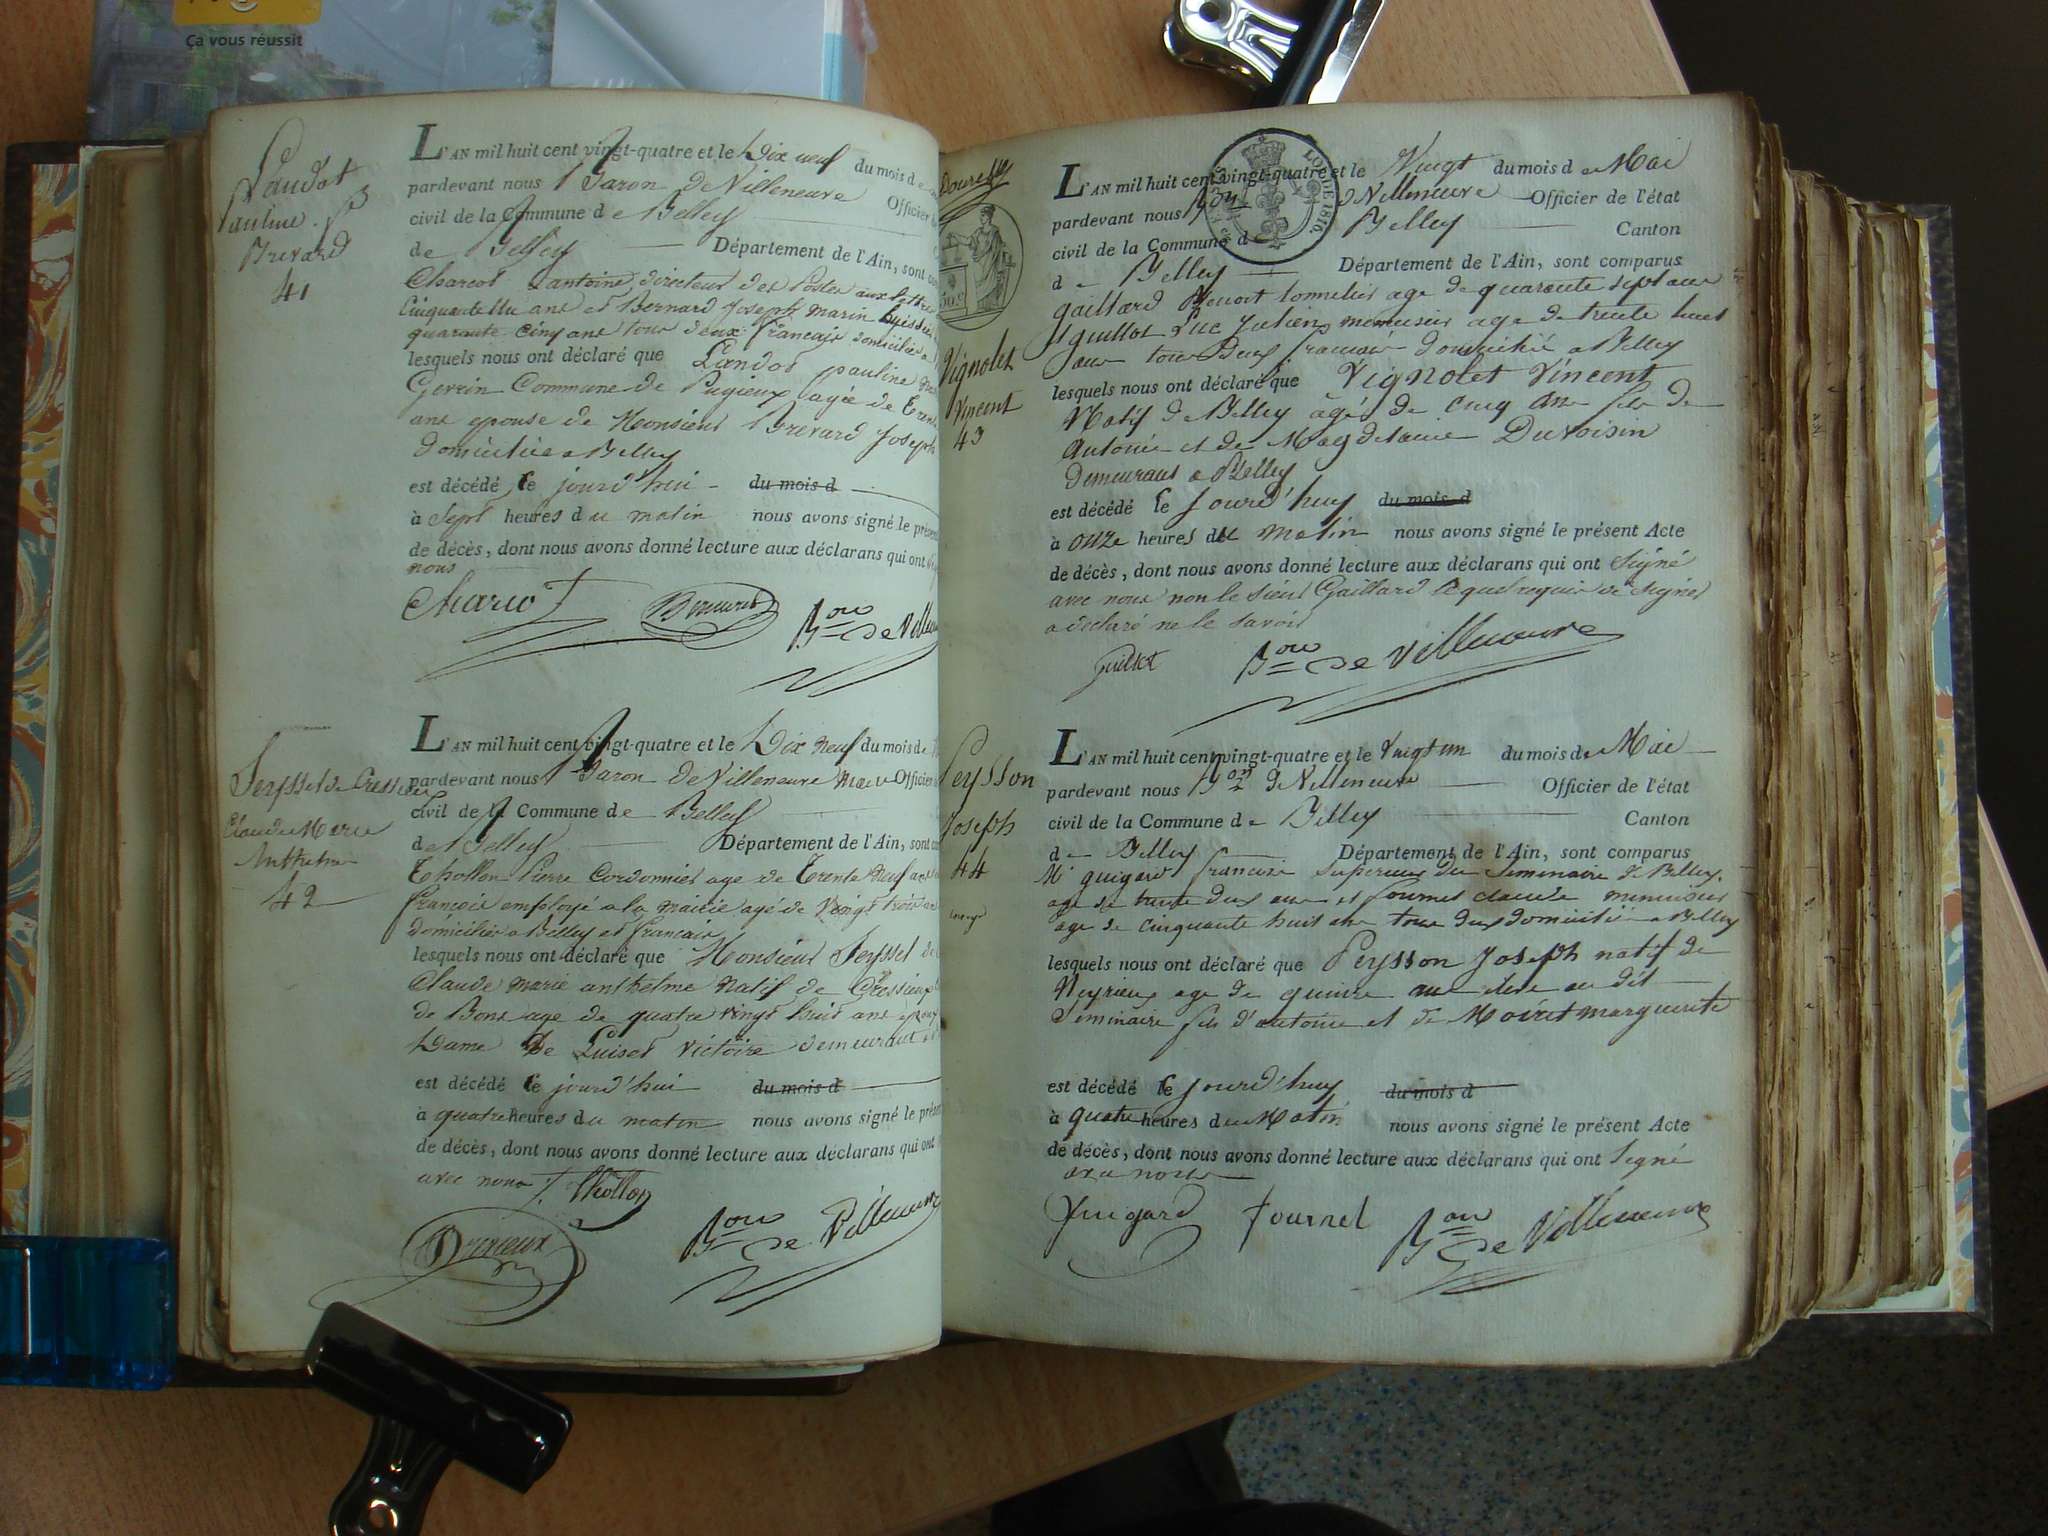 Ça vous réussit
Landot
Pauline
Brevard
41
L'AN mil huit cent vingt-quatre et le Dix neuf du mois de
pardevant nous Baron De Villeneuve Officier
civil de la Commune de Belley
de Belley Département de l'Ain, sont
Charcot antoine directeur des Postes aux lettres
Cinquante un ans et Bernard Joseph marin
quarante cinq ans tous deux francais domiciliés a
lesquels nous ont déclaré que Landot pauline
Gevrin Commune de Pugieux agée de trente
ans epouse de Monsieur Brevard Joseph
domiciliée a Belley
est décédé le jourd'hui du mois d
à Sept heures du matin nous avons signé le présent
de décès, dont nous avons donné lecture aux déclarans qui ont
nous
Charcot Bernard Bon de Villeneuve
Seyssel de Cressieu
Claude Marie
Anthelme
42
L'AN mil huit cent vingt-quatre et le Dix neuf du mois de
pardevant nous Baron de Villeneuve maire Officier
civil de la Commune de Belley
de Belley Département de l'Ain, sont
Thollon Pierre Cordonnier age de trente neuf ans
francois employé a la mairie agé de vingt trois ans
domiciliés a Belley et francais
lesquels nous ont déclaré que Monsieur Seyssel de
Claude marie anthelme natif de Cressieux
de Bons age de quatre vingt huit ans epoux
Dame De Luiset victoire demeurant
est décédé le jourd'hui du mois d
à quatre heures du matin nous avons signé le présent
de décès, dont nous avons donné lecture aux déclarans qui ont
avec nous Thollon
Bon de Villeneuve
LOI DE 1816.
Vignolet
Vincent
43
L'AN mil huit cent vingt-quatre et le Vingt du mois de Mai
pardevant nous Bon de Villeneuve Officier de l'état
civil de la Commune de Belley Canton
de Belley Département de l'Ain, sont comparus
gaillard Benoit tonnelier age de quarante sept ans
et guillot Luc Julien menuisier age de trente huit
ans tous Deux francais domicilié a Belley
lesquels nous ont déclaré que Vignolet Vincent
Natif de Belley âgé de cinq ans fils de
Antoine et de Magdelaine Duvoisin
Demeurant a Belley
est décédé le Jourd'huy du mois d
à onze heures du matin nous avons signé le présent Acte
de décès, dont nous avons donné lecture aux déclarans qui ont Signé
avec nous non le sieur Gaillard lequel requis de signer
a declaré ne le savoir
guillot Bon de Villeneuve
Peysson
Joseph
44
L'AN mil huit cent vingt-quatre et le Vingt un du mois de Mai
pardevant nous Bon de Villeneuve Officier de l'état
civil de la Commune de Belley Canton
de Belley Département de l'Ain, sont comparus
Mr guigard francois Superieur du Seminaire de Belley
age de trente deux ans et fournel claude menuisier
age de cinquante huit ans tous deux domicilié a Belley
lesquels nous ont déclaré que Peysson Joseph natif de
Neyrieux age de quinze ans eleve au dit
Seminaire fils d'antoine et de Moiret marguerite
est décédé le Jourd'huy du mois d
à quatre heures du Matin nous avons signé le présent Acte
de décès, dont nous avons donné lecture aux déclarans qui ont Signé
avec nous
Guigard fournel Bon de Villeneuve